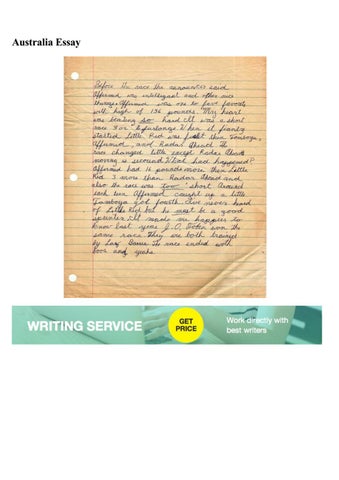 Australia Essay
Before the race the announcers said
Affirmed was intelligent and other nice
things. Affirmed was one to five favorite
with high of 136 pounds. My heart
was beating so hard. It was a short
race 7 or 8 furlongs. When it finally
started Little Red was first then Tamboga,
Affirmed, and Radar Ahead. The
race changed little except Radar Ahead
moving in second. What had happened?
Affirmed had 16 pounds more then Little
Red 3 more than Radar Ahead and
also the race was too short. Around
each turn Affirmed caught up a little
Tamboga got fourth. I've never heard
of Little Red but he must be a good
sprinter. It made me happier to
know last year J.O. Tobin won the
same race. They are both trained
by Laz Barrera. The race ended with
boos and yeahs.
WRITING SERVICE
GET
PRICE
Work directly with
best writers